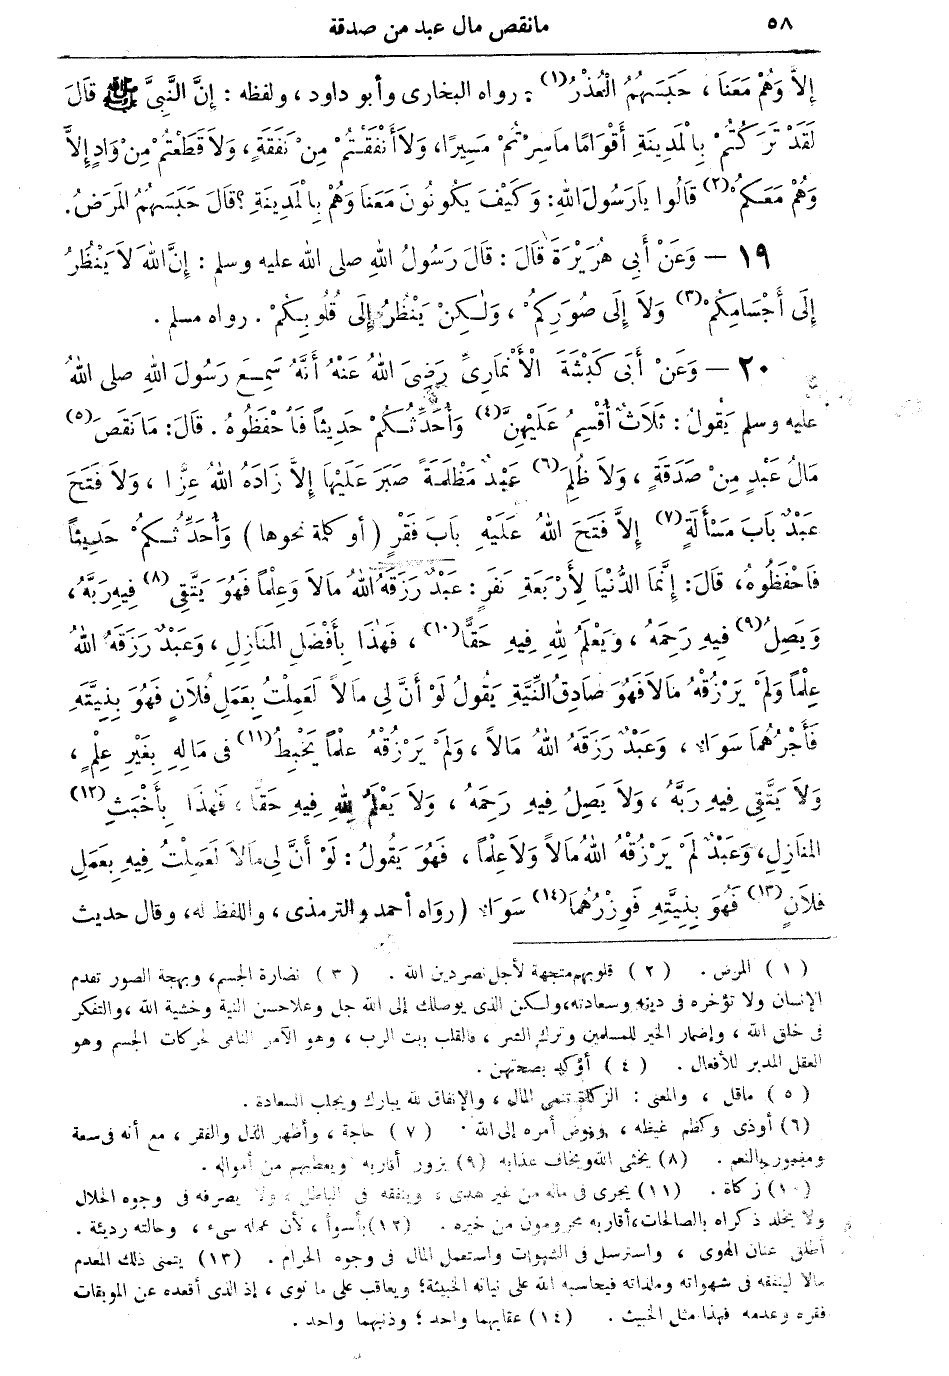 ٥٨ مانقص مال عبد من صدقة
إِلاَّ وَهُمْ مَعَنَا ، حَبَسَهُمُ الْعُذْرُ(١) ؛ رواه البخارى وأبو داود ، ولفظه : إِنَّ النَّبِىَّ ﷺ قَالَ
لَقَدْ تَرَكْتُمْ بِالْمَدِينَةِ أَقْوَامًا مَا سِرْتُمْ مَسِيرًا، وَلاَ أَنْفَقْتُمْ مِنْ نَفَقَةٍ، وَلاَ قَطَعْتُمْ مِنْ وَادٍ إِلاَّ
وَهُمْ مَعَكُمْ(٢) قَالُوا يَارَسُولَ اللهِ: وَكَيْفَ يَكُونُونَ مَعَنَا وَهُمْ بِالْمَدِينَةِ ؟ قَالَ حَبَسَهُمُ المَرَضُ.
١٩ — وَعَنْ أَبِى هُرَيْرَةَ قَالَ : قَالَ رَسُولُ اللهِ صلى الله عليه وسلم : إِنَّ اللهَ لاَ يَنْظُرُ
إِلَى أَجْسَامِكُمْ(٣) وَلاَ إِلَى صُوَرِكُمْ ، وَلٰكِنْ يَنْظُرُ إِلَى قُلُوبِكُمْ . رواه مسلم .
٢٠ — وَعَنْ أَبِى كَبْشَةَ الْأَنْمَارِىِّ رَضِىَ اللهُ عَنْهُ أَنَّهُ سَمِعَ رَسُولَ اللهِ صلى اللهُ
عليه وسلم يَقُولُ : ثَلاَثٌ أُقْسِمُ عَلَيْهِنَّ(٤) وَأُحَدِّثُكُمْ حَدِيثاً فَاحْفَظُوهُ . قَالَ: مَا نَقَصَ(٥)
مَالُ عَبْدٍ مِنْ صَدَقَةٍ ، وَلاَ ظُلِمَ(٦) عَبْدٌ مَظْلَمَةً صَبَرَ عَلَيْهَا إِلاَّ زَادَهُ اللهُ عِزًّا ، وَلاَ فَتَحَ
عَبْدٌ بَابَ مَسْأَلَةٍ(٧) إِلاَّ فَتَحَ اللهُ عَلَيْهِ بَابَ فَقْرٍ ( أو كلمة نحوها ) وَأُحَدِّثُكُمْ حَدِيثاً
فَاحْفَظُوهُ، قَالَ: إِنَّمَا الدُّنْيَا لِأَرْبَعَةِ نَفَرٍ : عَبْدٌ رَزَقَهُ اللهُ مَالاً وَعِلْماً فَهُوَ يَتَّقِى(٨) فِيهِ رَبَّهُ ،
وَيَصِلُ(٩) فِيهِ رَحِمَهُ ، وَيَعْلَمُ لِلهِ فِيهِ حَقًّا(١٠) ، فَهٰذَا بِأَفْضَلِ المَنَازِلِ ، وَعَبْدٌ رَزَقَهُ اللهُ
عِلْماً وَلَمْ يَرْزُقْهُ مَالاً فَهُوَ صَادِقُ النِّيَّةِ يَقُولُ لَوْ أَنَّ لِى مَالاً لَعَمِلْتُ بِعَمَلِ فُلاَنٍ فَهُوَ بِنِيَّتِهِ
فَأَجْرُهُمَا سَوَاءٌ ، وَعَبْدٌ رَزَقَهُ اللهُ مَالاً ، وَلَمْ يَرْزُقْهُ عِلْماً يَخْبِطُ(١١) فى مَالِهِ بِغَيْرِ عِلْمٍ ،
وَلاَ يَتَّقِى فِيهِ رَبَّهُ ، وَلاَ يَصِلُ فِيهِ رَحِمَهُ ، وَلاَ يَعْلَمُ لِلهِ فِيهِ حَقًّا ، فَهٰذَا بِأَخْبَثِ(١٢)
المَنَازِلِ، وَعَبْدٌ لَمْ يَرْزُقْهُ اللهُ مَالاً وَلاَ عِلْماً ، فَهُوَ يَقُولُ : لَوْ أَنَّ لِى مَالاً لَعَمِلْتُ فِيهِ بِعَمَلِ
فُلاَنٍ(١٣) فَهُوَ بِنِيَّتِهِ فَوِزْرُهُمَا(١٤) سَوَاءٌ ( رواه أحمد والترمذى ، واللفظ له ، وقال حديث
(١) المرض . (٢) قلوبهم متجهة لأجل نصر دين الله . (٣) نضارة الجسم، وبهجة الصور تقدم
الإنسان ولا تؤخره فى دينه وسعادته، ولكن الذى يوصلك إلى الله جل وعلا حسن النية وخشية الله ، والتفكر
فى خلق الله ، وإضمار الخير للمسلمين وترك الشر ، فالقلب بيت الرب ، وهو الآمر الناهى لحركات الجسم وهو
العقل المدبر للأفعال . (٤) أؤكد بصحتهن .
(٥) ماقل ، والمعنى : الزكاة تنمى المال ، والإنفاق لله يبارك ويجلب السعادة .
(٦) أوذى وكظم غيظه ، وفوض أمره إلى الله . (٧) حاجة ، وأظهر الذل والفقر ، مع أنه فى سعة
ومغمور بالنعم . (٨) يخشى الله ويخاف عذابه (٩) يزور أقاربه ويعطيهم من أمواله .
(١٠) زكاة . (١١) يجرى فى ماله من غير هدى ، وينفقه فى الباطل ، ولا يصرفه فى وجوه الحلال
ولا يخلد ذكراه بالصالحات، أقاربه محرومون من خيره . (١٢) بأسوأ ، لأن عمله سىء ، وحالته رديئة .
أطلق عنان الهوى ، واسترسل فى الشهوات واستعمل المال فى وجوه الحرام . (١٣) يتمنى ذلك المعدم
مالا لينفقه فى شهواته وملذاته فيحاسبه الله على نياته الخبيثة؛ ويعاقب على ما نوى ، إذ الذى أقعده عن الموبقات
فقره وعدمه فهذا مثل الخبيث . (١٤) عقابهما واحد ؛ وذنبهما واحد .